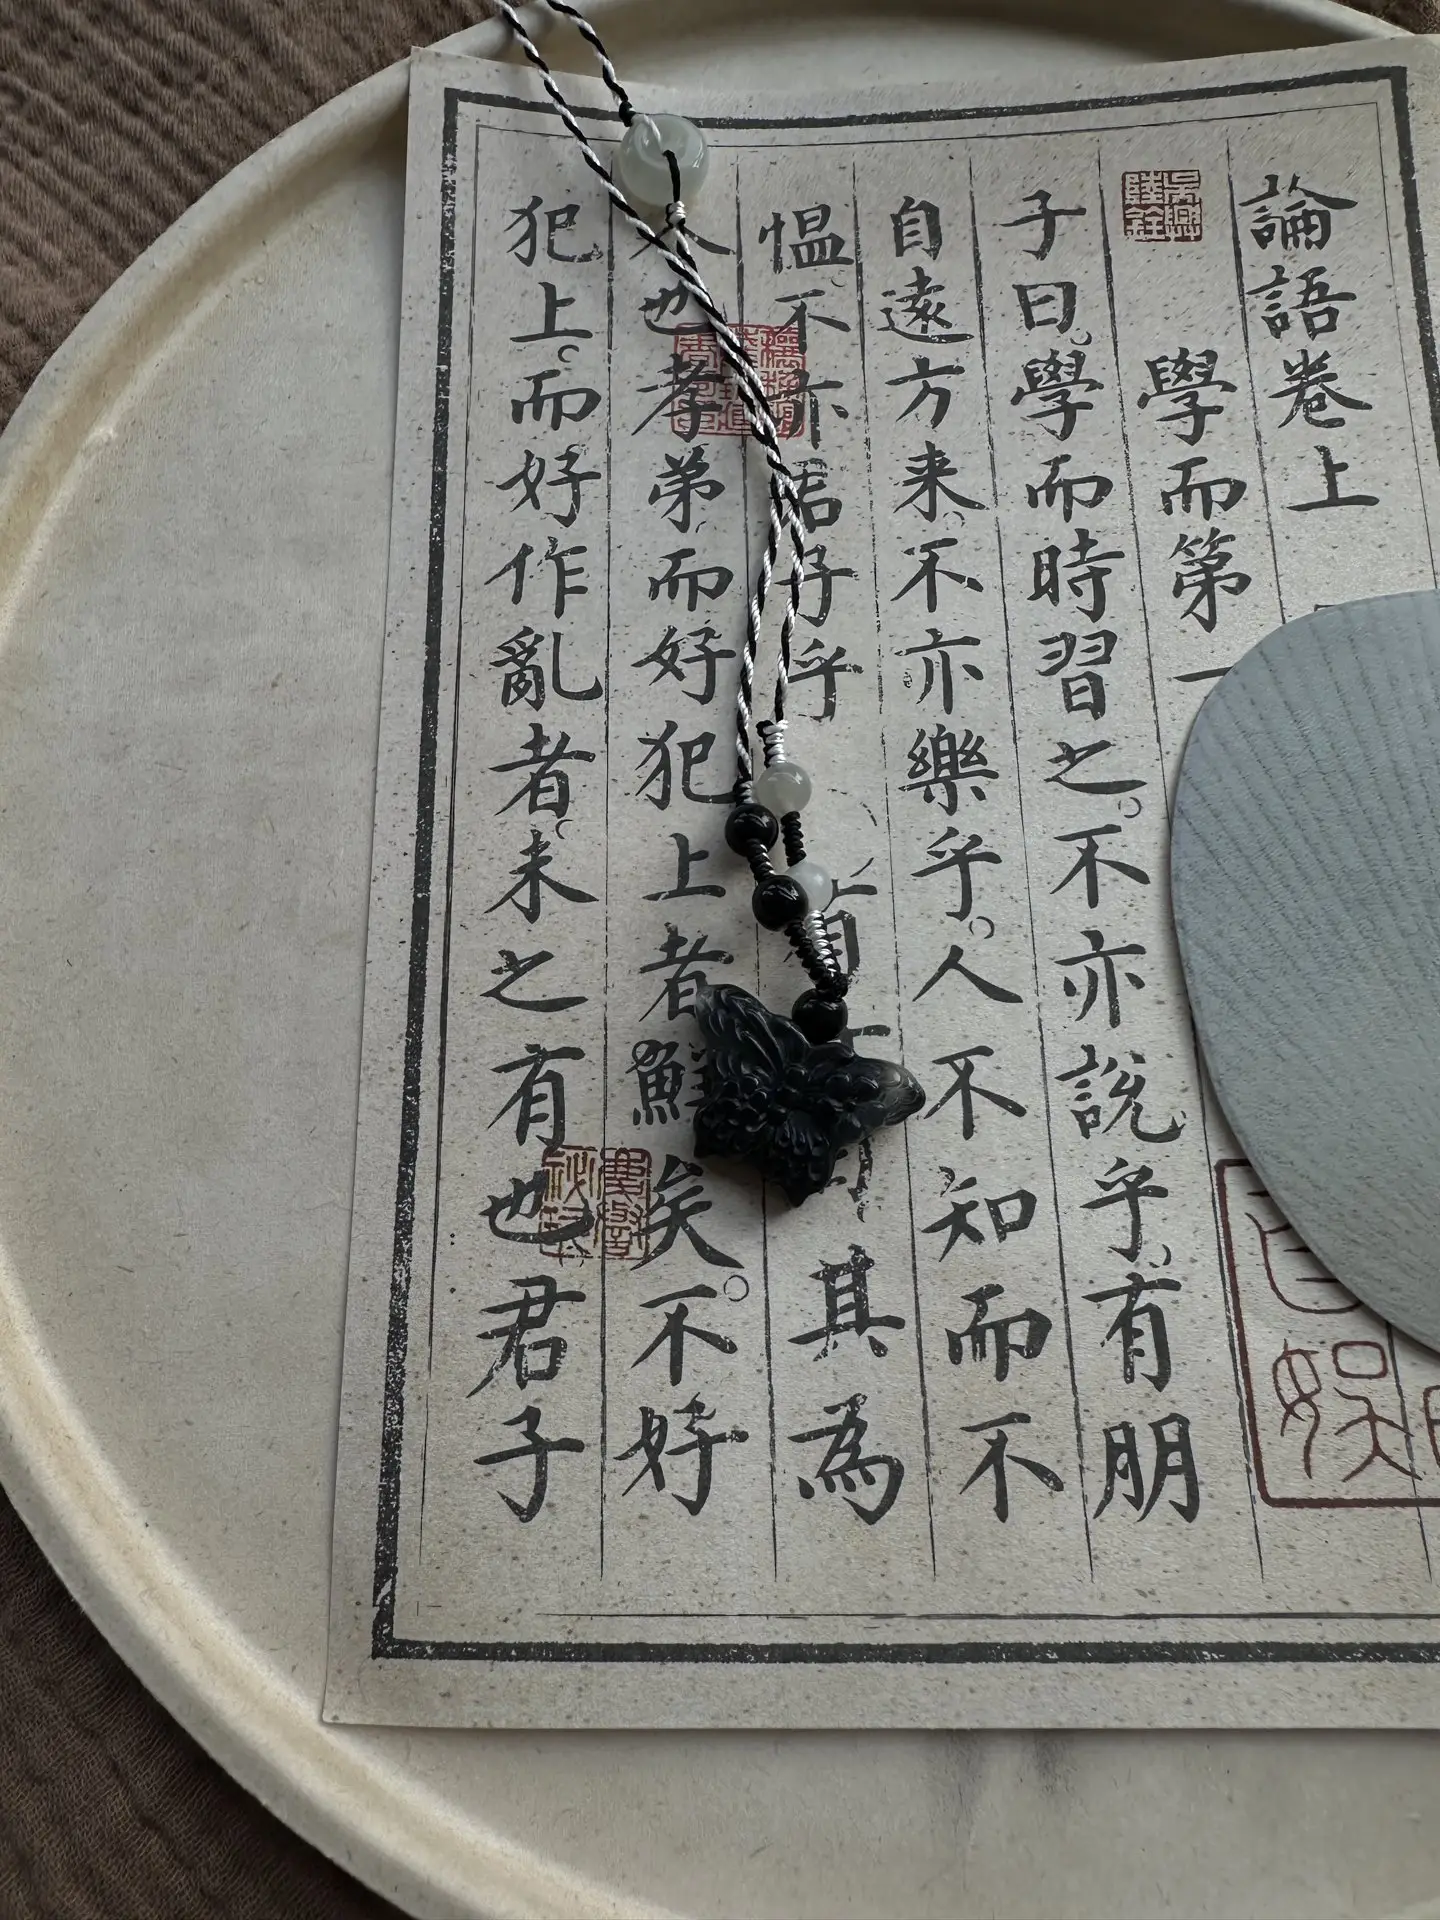 論語卷上
學而第一
子曰。學而時習之。不亦說乎。有朋
自遠方来。不亦樂乎。人不知而不
愠。不亦君子乎 有 其為
人也孝弟而好犯上者鮮矣。不好
犯上。而好作亂者。未之有也君子
吳興
陸銓